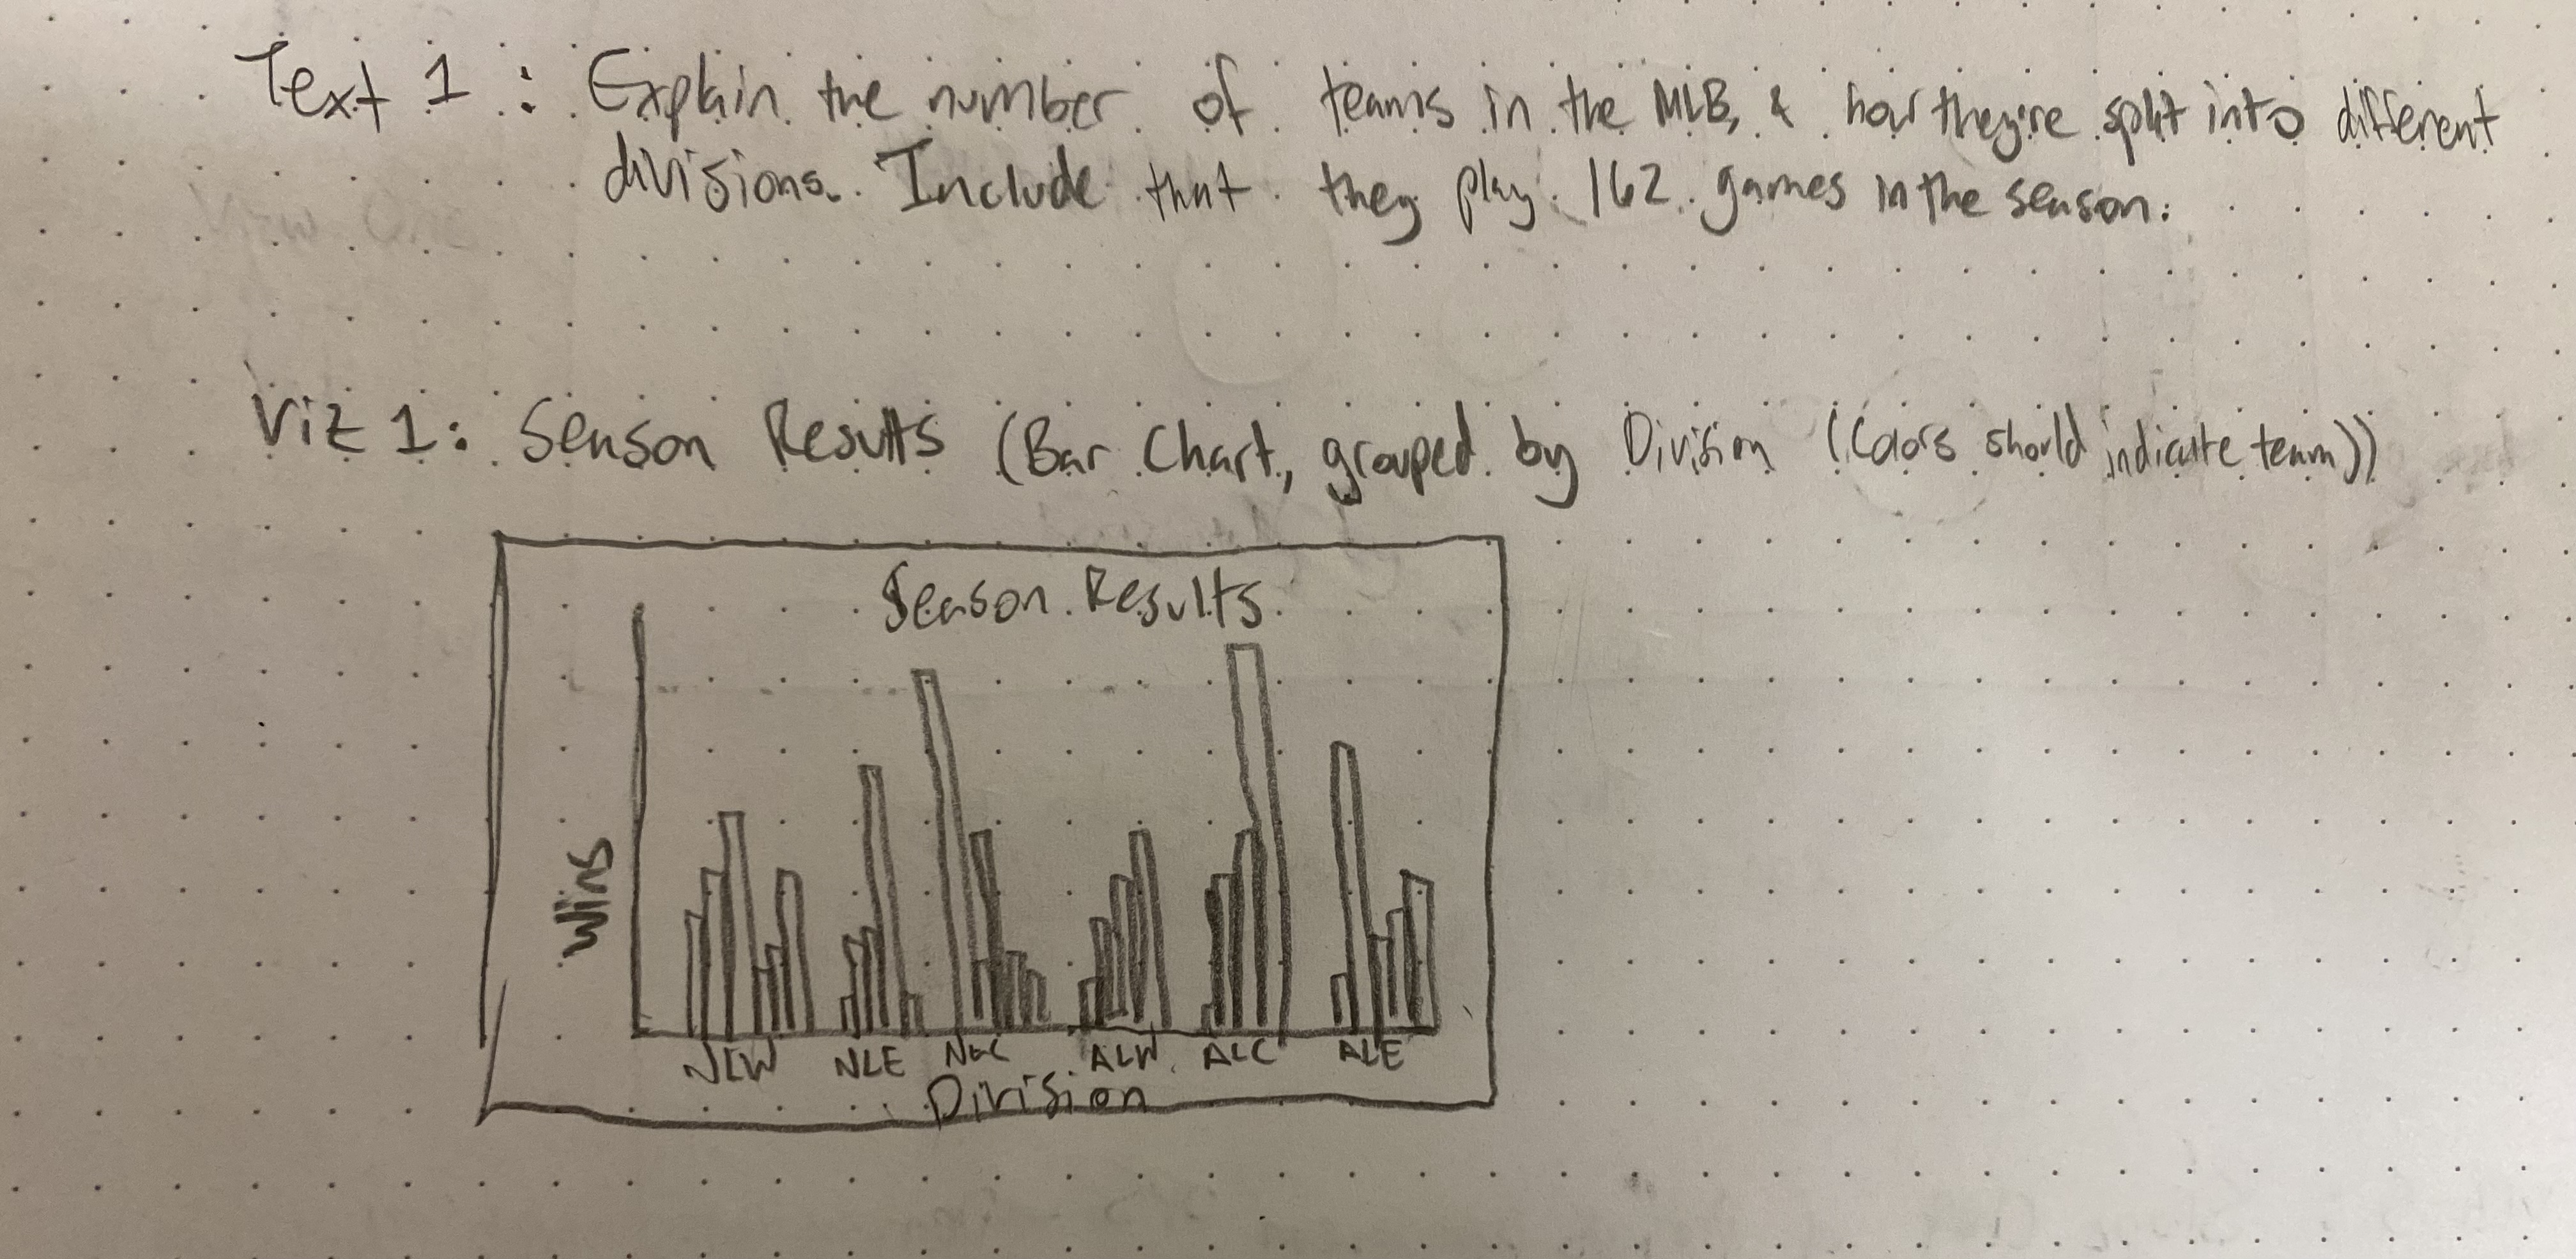 Text 1 : Explain the number of teams in the MLB, & how they're split into different
divisions. Include that they play 162 games in the season.
Viz 1: Season Results (Bar Chart, grouped by Division (Colors should indicate team))
Season Results
Wins
NLW NLE NLC ALW ALC ALE
Division